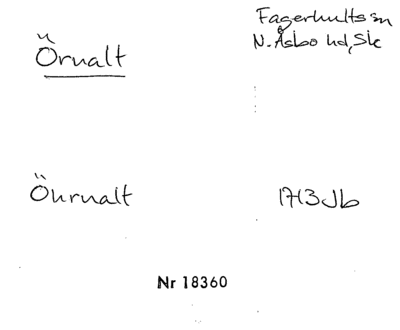 Örnalt
Fagerhults sn
N. Åsbo hd, Sk
Öhrnalt
1713 Jb
Nr 18360